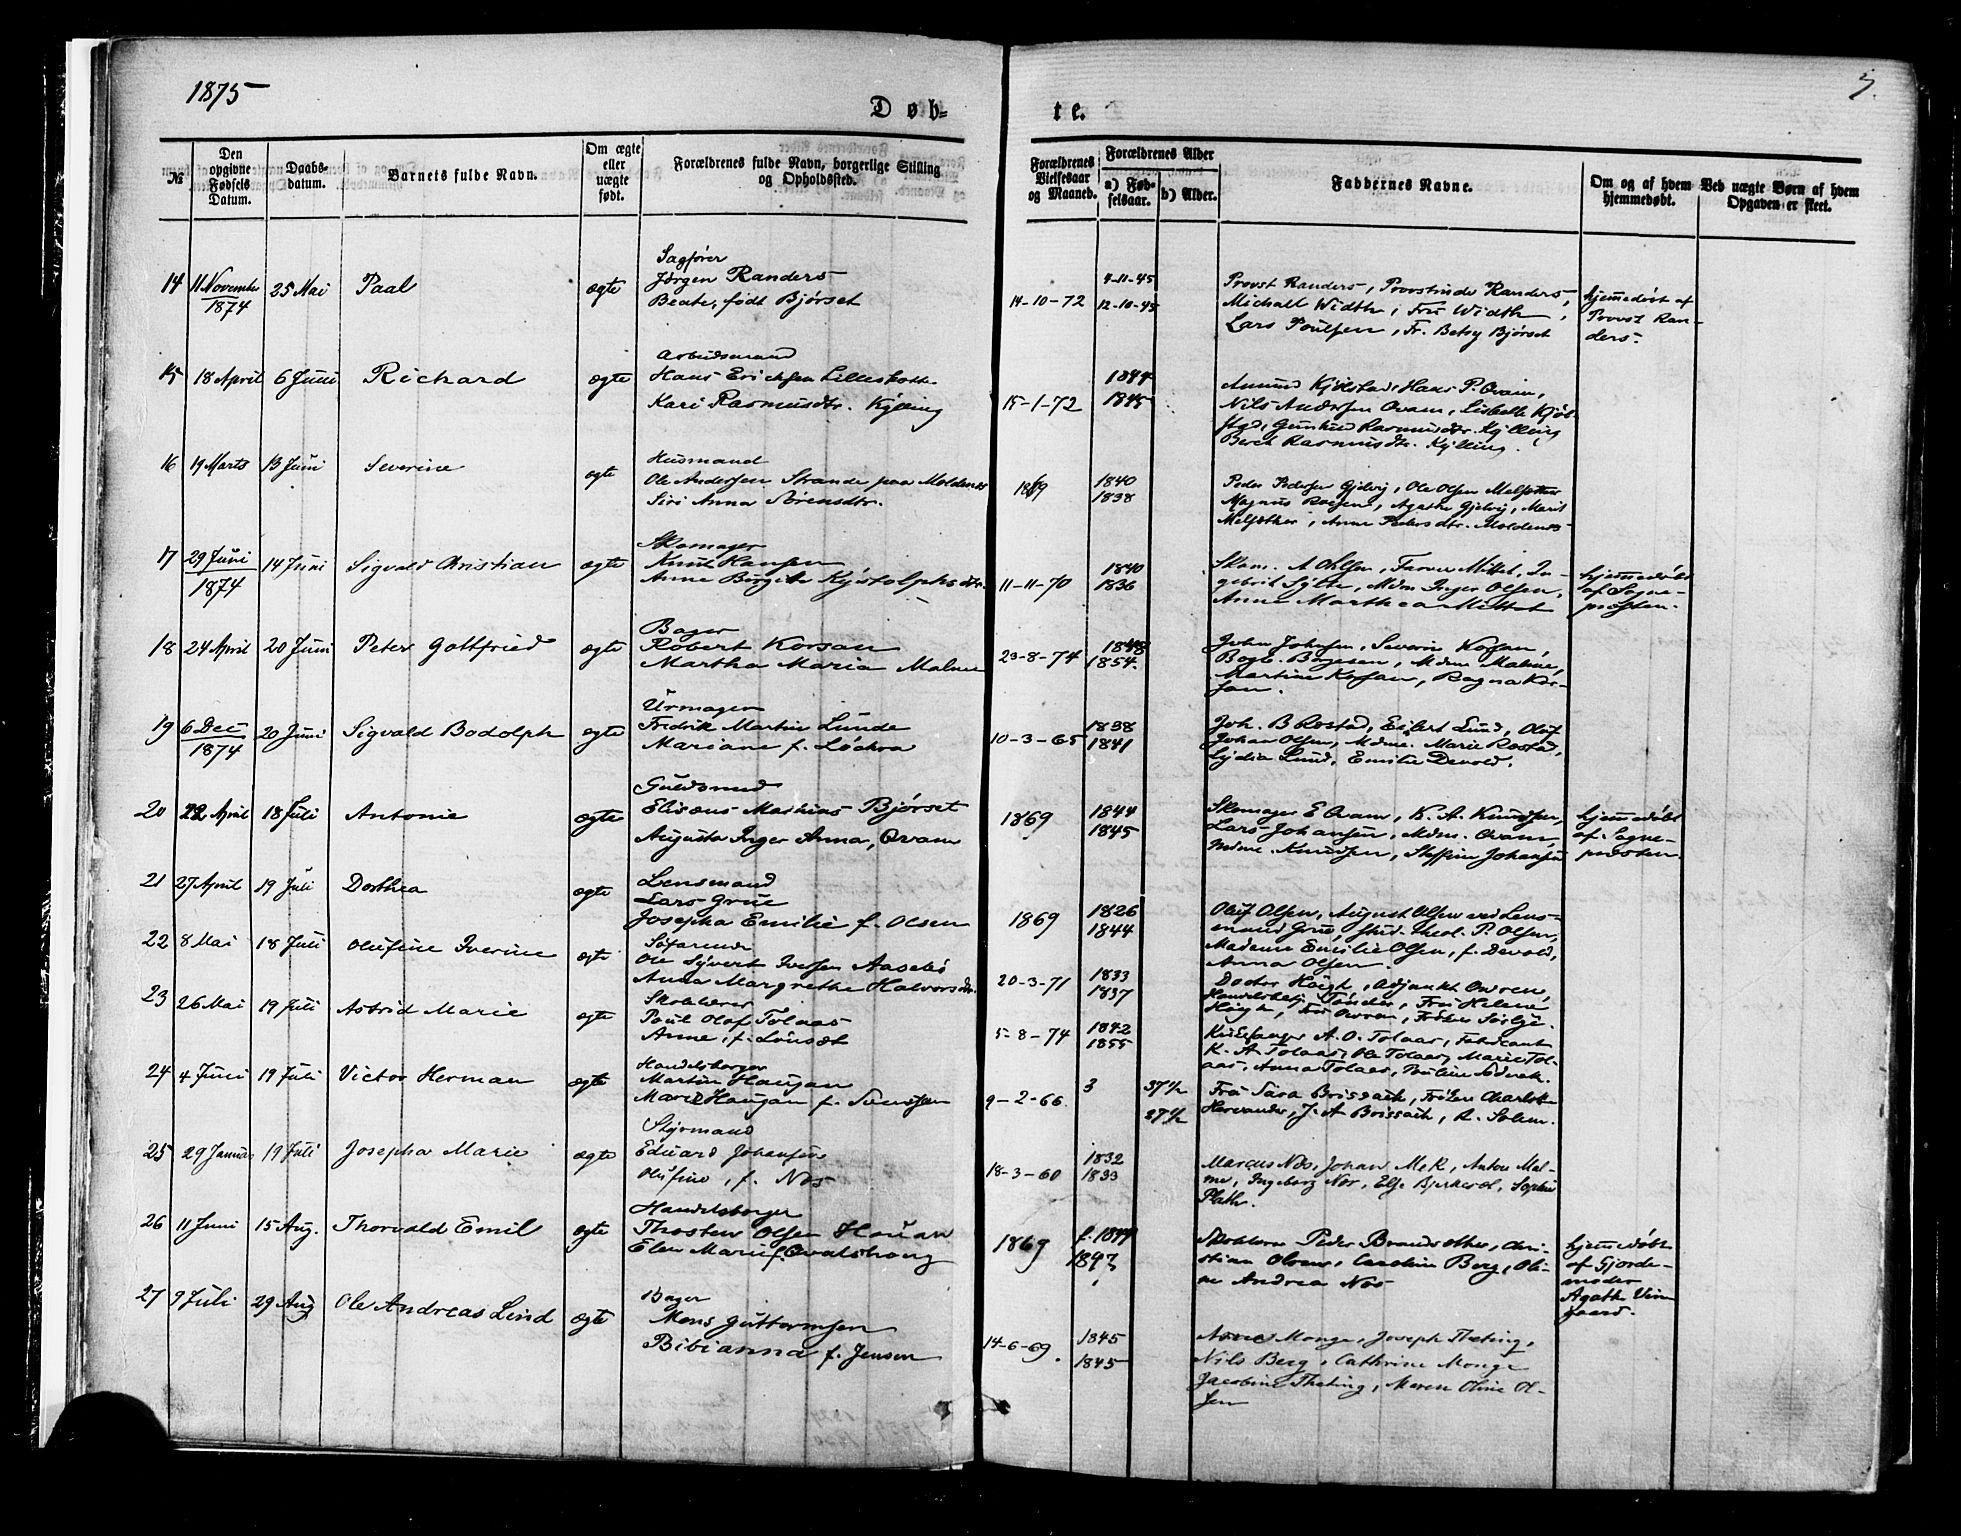 1875
3.
Døb-
te.
№
Den opgivne Fødsels Datum.
Daabs-datum.
Barnets fulde Navn.
Om ægte eller uægte født.
Forældrenes fulde Navn, borgerlige Stilling og Opholdssted.
Forældrenes Vielsesaar og Maaned.
Forældrenes Alder
a) Fød-selsaar.
b) Alder.
Faddernes Navne.
Om og af hvem hjemmedøbt.
Ved uægte Børn af hvem Opgaven er skeet.
14 11 November 1874 25 Mai Paal ægte
Sagfører
Jørgen Randers
Beate, født Bjørset
14-10-72 4-11-45 12-10-45
Provst Randers, Provstinde Randers,
Michalt Width, Fru Width,
Lars Poulsen, Fr. Betsy Bjørset
hjemmedøbt af
Provst Ran-
ders.
15 18 April 6 Juni Richard ægte
Arbeidsmand
Hans Ericksen
Kari Rasmusdtr. Kylling
15-1-72 1844 1845
Amund Kjølstad, Hans P. Qvam,
Nils Andersen Qvam, Lisbeth Kjøl-
stad, Gunhild Rasmusdtr. Kylling
Berit Rasmusdtr. Kylling.
16 19 Marts 13 Juni Severine ægte
Husmand
Ole Andersen Strande paa Moldenæs
Siri Anna Sørensdtr.
1869 1840 1838
Peder Pedersen Gjelvig, Ole Olsen
Magnus Agathe Gjelvig, Marit
Anne Pedersdtr. Moldenæs
17 29 Juni 1874 14 Juni Sigvald Christian ægte
Skomager
Knud Hansen
Anne Birgith
11-11-70 1840 1836
Skom. A Ohlsen, Farver Mittet, In-
gebrit Sylte, Mdm Inger Olsen,
Anne Marthea Mittet
hjemmedøbt
af Sogne-
præsten.
18 24 April 20 Juni Peter Gottfried ægte
Bager
Robert Korsan
Martha Maria Malme
23-8-74 1848 1854.
John Johnsen, Severin Korsan,
Bogb. Børgesen, Mdm Malme,
Martine Korsan, Ragna Kor-
san.
19 6 Dec 1874 20 Juni Sigvald Bodolph ægte
Urmager
Fredrik Martin Lunde
Mariane f. Lochra
10-3-65 1838 1841
Joh. B Rostad, Eilert Lund, Oluf
Johan Olsen, Mdme. Marie Rostad,
Lydia Lund, Emilie Devold.
20 22 April 18 Juli Antonie ægte
Guldsmed
Elisæus Mathias Bjørset
Augusta Inger Anna, Qvam
1869 1844 1845
Skomager E Qvam, K. A. Knudsen,
Lars Johansen, Mdm. Qvam,
Mdme. Knudsen, Steffine Johansen
hjemmedøbt
af Sogne-
præsten.
21 27 April 19 Juli Dorthea ægte
Lensmand
Lars Grüe
Josepha Emilie f. Olsen
1869 1826 1844
Oluf Olsen, August Olsen ved Lens-
mand Grüe, Stud. theol. P. Olsen,
Madame Emilie Olsen, f. Devold,
Anna Olsen.
22 8 Mai 18 Juli Olufine Iverine ægte
Søfarende
Ole Syvert Iversen Aasebø
Anna Margrethe Halvorsdtr.
20-3-71 1833 1837
Doctor Høigh, Adjunkt Owren,
Tønder, Fru Helene
Høigh, Fru Owren, Frøken
23 26 Mai 19 Juli Astrid Marie ægte
Skolelærer
Poul Olaf Tolaas
Anne, f.
5-8-74 1842 1855
Kirkesanger A. O. Tolaas, Fabrikant
K. A Tolaas, Ole Tolaas, Marie Tol-
aas, Anna Tolaas, Pauline
24 4 Juni 19 Juli Victor Herman ægte
Handelsborger
Martin Haugan
Marie Haugan f. Svensen
9-2-66. 3 37½ 27½
Fru Sara Brissach, Frøken Charlotte
J. A Brissach, R. Solem.
25 29 Januar 19 Juli Josepha Marie ægte
Styrmand
Eduard Johansen
Olufine, f. Næs
18-3-60 1832 1833
Marcus Næs, Johan Mek, Anton Mal-
me, Ingeborg Næs, Else Sophie
Plathe.
26 11 Juni 15 Aug. Thorvald Emil ægte
Handelsborger
Thosten Olsen Houan
Elen Marie f. Qvalshoug
1869 f. 1844 1847
Skolelærer Peder Brandsether, Chri-
stian Olsen, Caroline Berg, Oli-
ne Andrea Næs
hjemmedøbt
af Gjorde-
moder
Agathe Vin-
gaard.
27 9 Juli 29 Aug Ole Andreas Lind ægte
Bager
Mons Guttormsen
Bibianna f. Jensen
14-6-69. 1845 1845
Monge, Joseph Theting,
Nils Berg, Cathrine Monge
Jacobine Theting, Maren Oline Ol-
sen